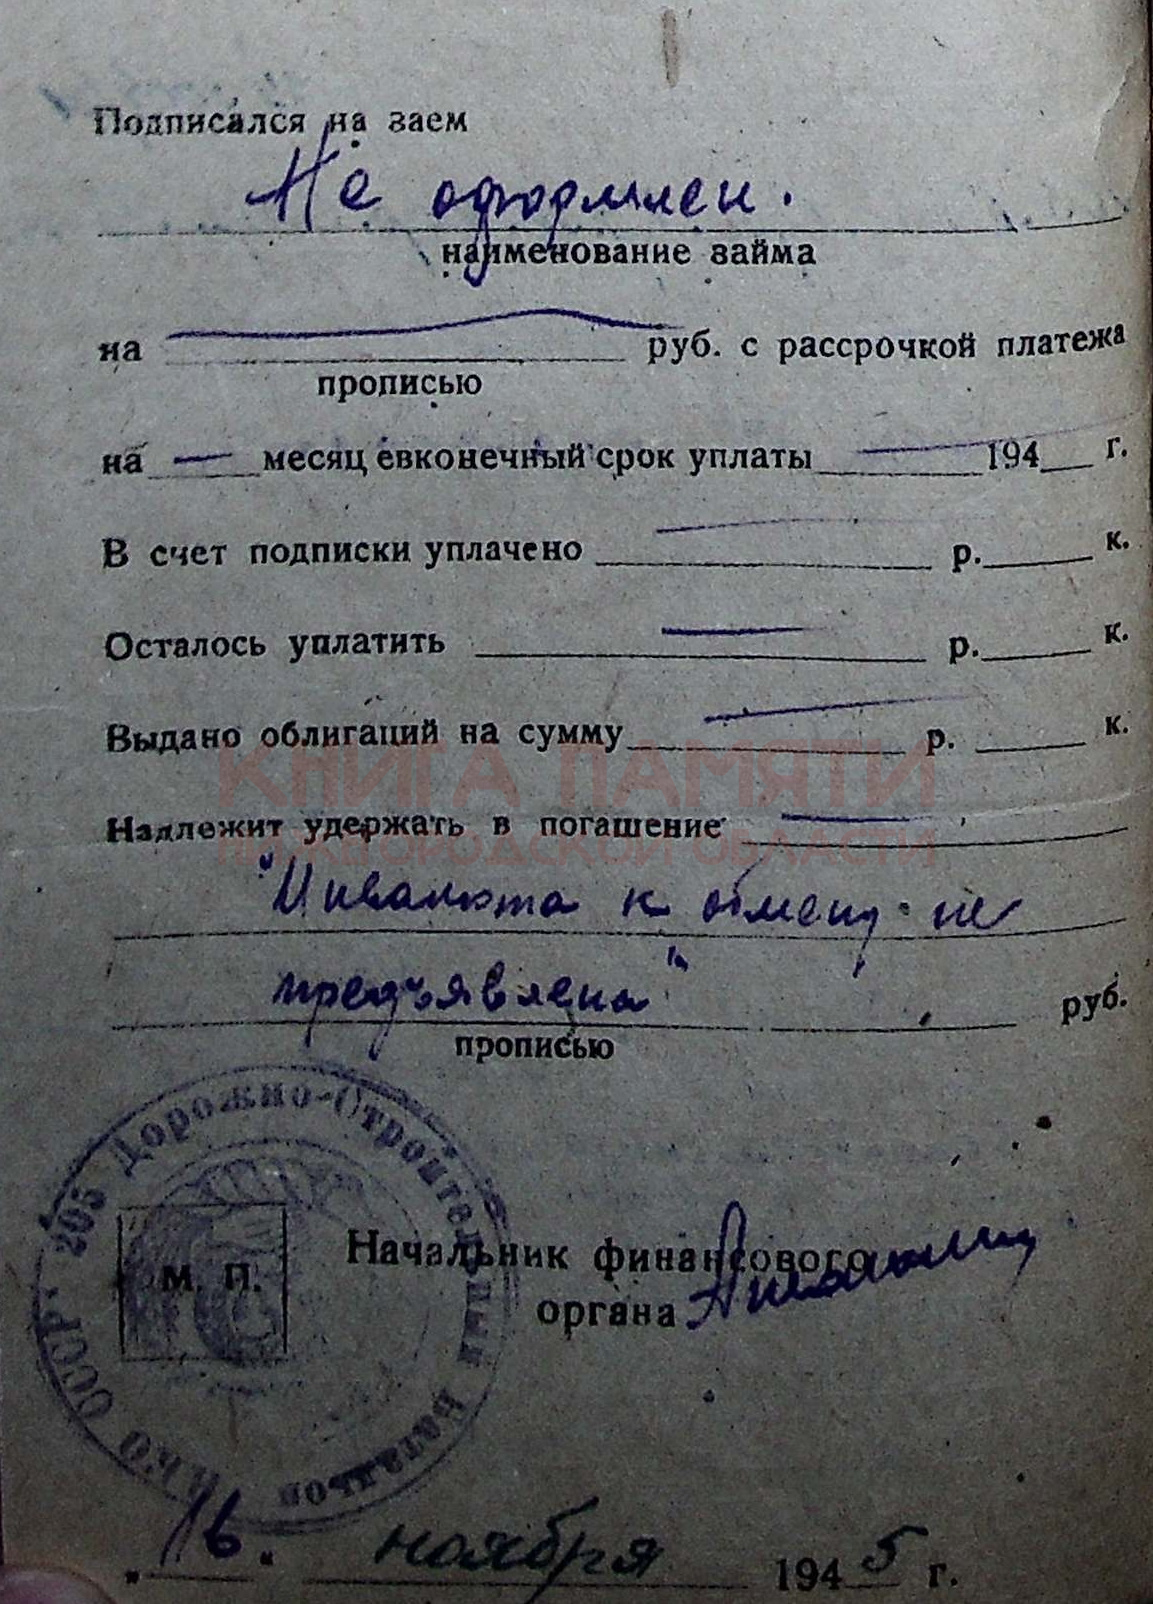 Подписался на заем
Не оформлен.
наименование займа
на руб. с рассрочкой платежа
прописью
на — месяц евконечный срок уплаты — 194 г.
В счет подписки уплачено — р. к.
Осталось уплатить — р. к.
Выдано облигаций на сумму — р. к.
КНИГА ПАМЯТИ
Надлежит удержать в погашение —
НИЖЕГОРОДСКОЙ ОБЛАСТИ
"Инвалюта к обмену не
предъявлена"
руб.
прописью
205 Дорожно-Строительный Батальон НКО СССР
М. П.
Начальник финансового
органа
"16" ноября 1945 г.